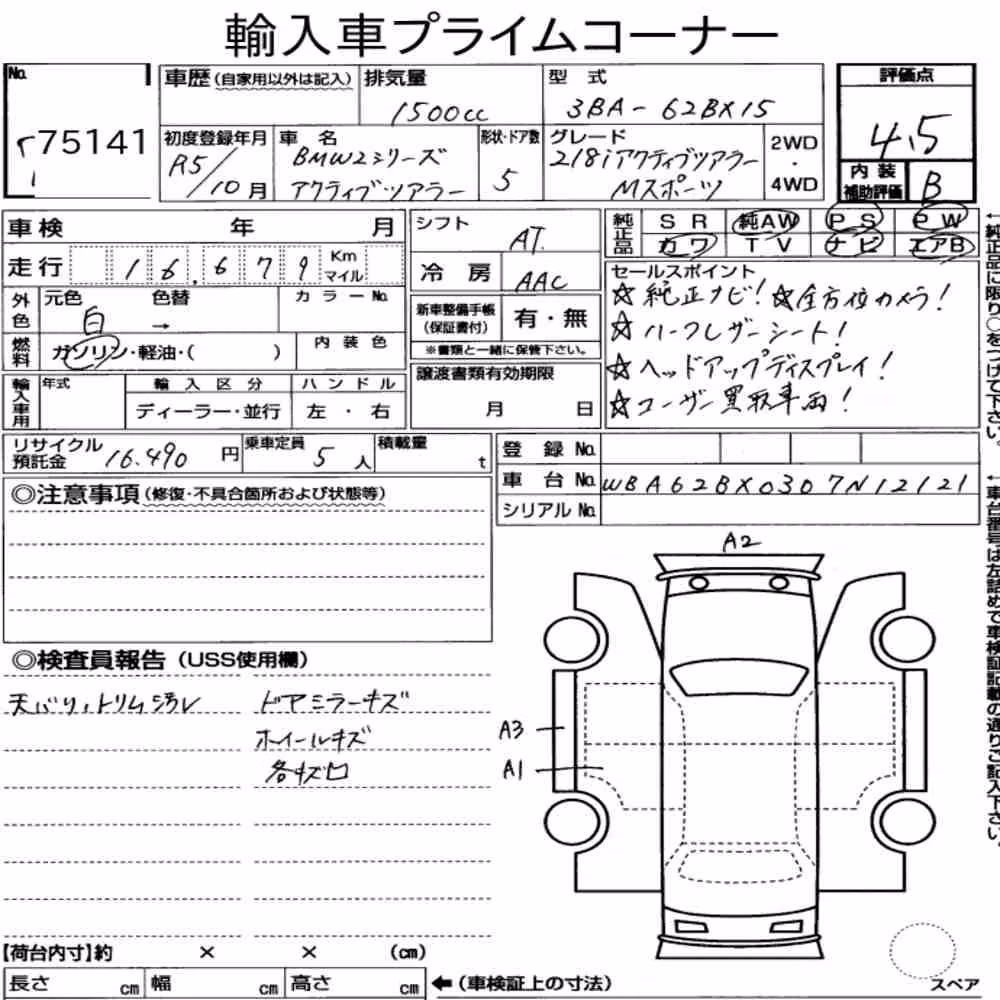 輸入車プライムコーナー
No. 75141
車歴(自家用以外は記入) 排気量 1500cc 型式 3BA-62BX15
初度登録年月 R5/10月 車名 BMW2シリーズ アクティブツアラー 形状・ドア数 5 グレード 218iアクティブツアラー Mスポーツ 2WD・4WD
評価点 4.5
内装補助評価 B
車検 年 月
走行 16,679 Km マイル
外色 元色 白 色替 → カラーNo.
燃料 ガソリン・軽油・( ) 内装色
輸入車用 年式 輸入区分 ディーラー・並行 ハンドル 左・右
シフト AT.
冷房 AAC
新車整備手帳(保証書付) 有・無
※書類と一緒に保管下さい。
譲渡書類有効期限
月 日
純正品 SR 純AW PS PW
カワ TV ナビ エアB
セールスポイント
☆純正ナビ! ☆全方位カメラ!
☆ハーフレザーシート!
☆ヘッドアップディスプレイ!
☆ユーザー買取車両!
←純正品に限り○をつけて下さい。
リサイクル預託金 16.490円 乗車定員 5人 積載量 t
登録No.
車台No. WBA62BX0307N12121
シリアルNo.
←車台番号は左詰めで車検証記載の通りご記入下さい。
◎注意事項(修復・不具合箇所および状態等)
◎検査員報告(USS使用欄)
天バリ、トリム汚レ ドアミラーキズ
ホイールキズ
各キズ凹
A2
A3
A1
【荷台内寸】約 × × (cm)
長さ cm 幅 cm 高さ cm ←(車検証上の寸法)
スペア